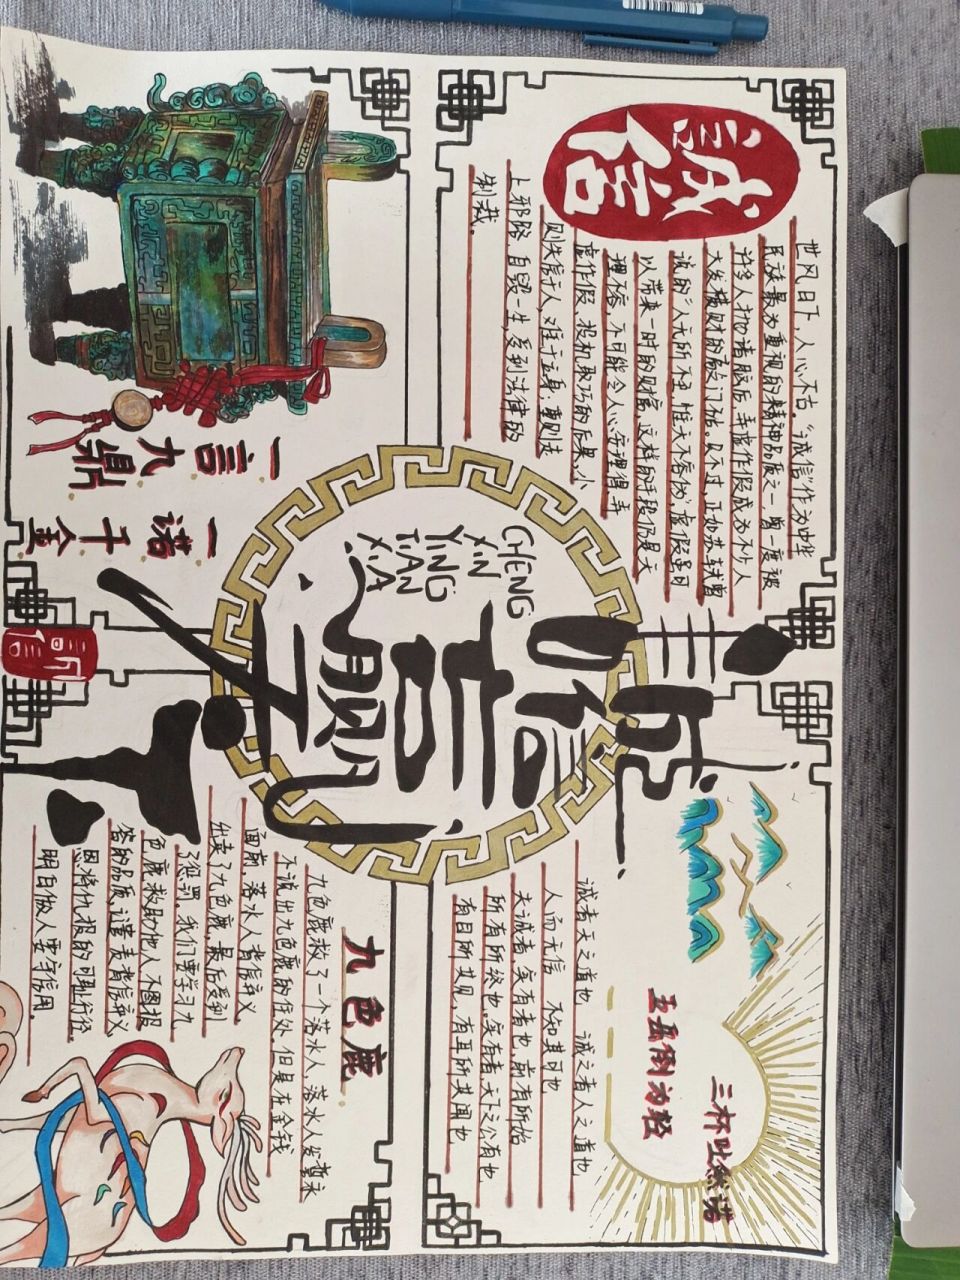 诚信
世风日下，人心不古。“诚信”作为中华
民族最为重视的精神品质之一，曾一度被
许多人抛诸脑后，弄虚作假成为不少人
大发横财的敲门砖。只不过，正如苏轼曾
说的“人无所不至，惟天不容伪”，虚假虽可
以带来一时的财富，这样的手段仍是天
理不容，不可能令人心安理得，弄
虚作假、投机取巧的后果，小
则失信于人，难于立身，重则走
上邪路，自毁一生，受到法律的
制裁。
三杯吐然诺
五岳倒为轻
诚者天之道也 诚之者人之道也
人而无信 不知其可也
夫诚者，实有者也，前有所始
所有所终也。实有者，天下之公有也
有目所共见，有耳所共闻也
诚信赢天下
CHENG
XIN
YING
TIAN
XIA
一言
九鼎
一诺
千金
九色鹿
九色鹿救了一个落水人，落水人发誓永
不说出九色鹿的住处。但是在金钱
面前，落水人背信弃义
出卖了九色鹿，最后受到
了惩罚。我们要学习九
色鹿救助他人不图报
答的品质，谴责背信弃义
恩将仇报的可耻行径。
明白做人要守信用。